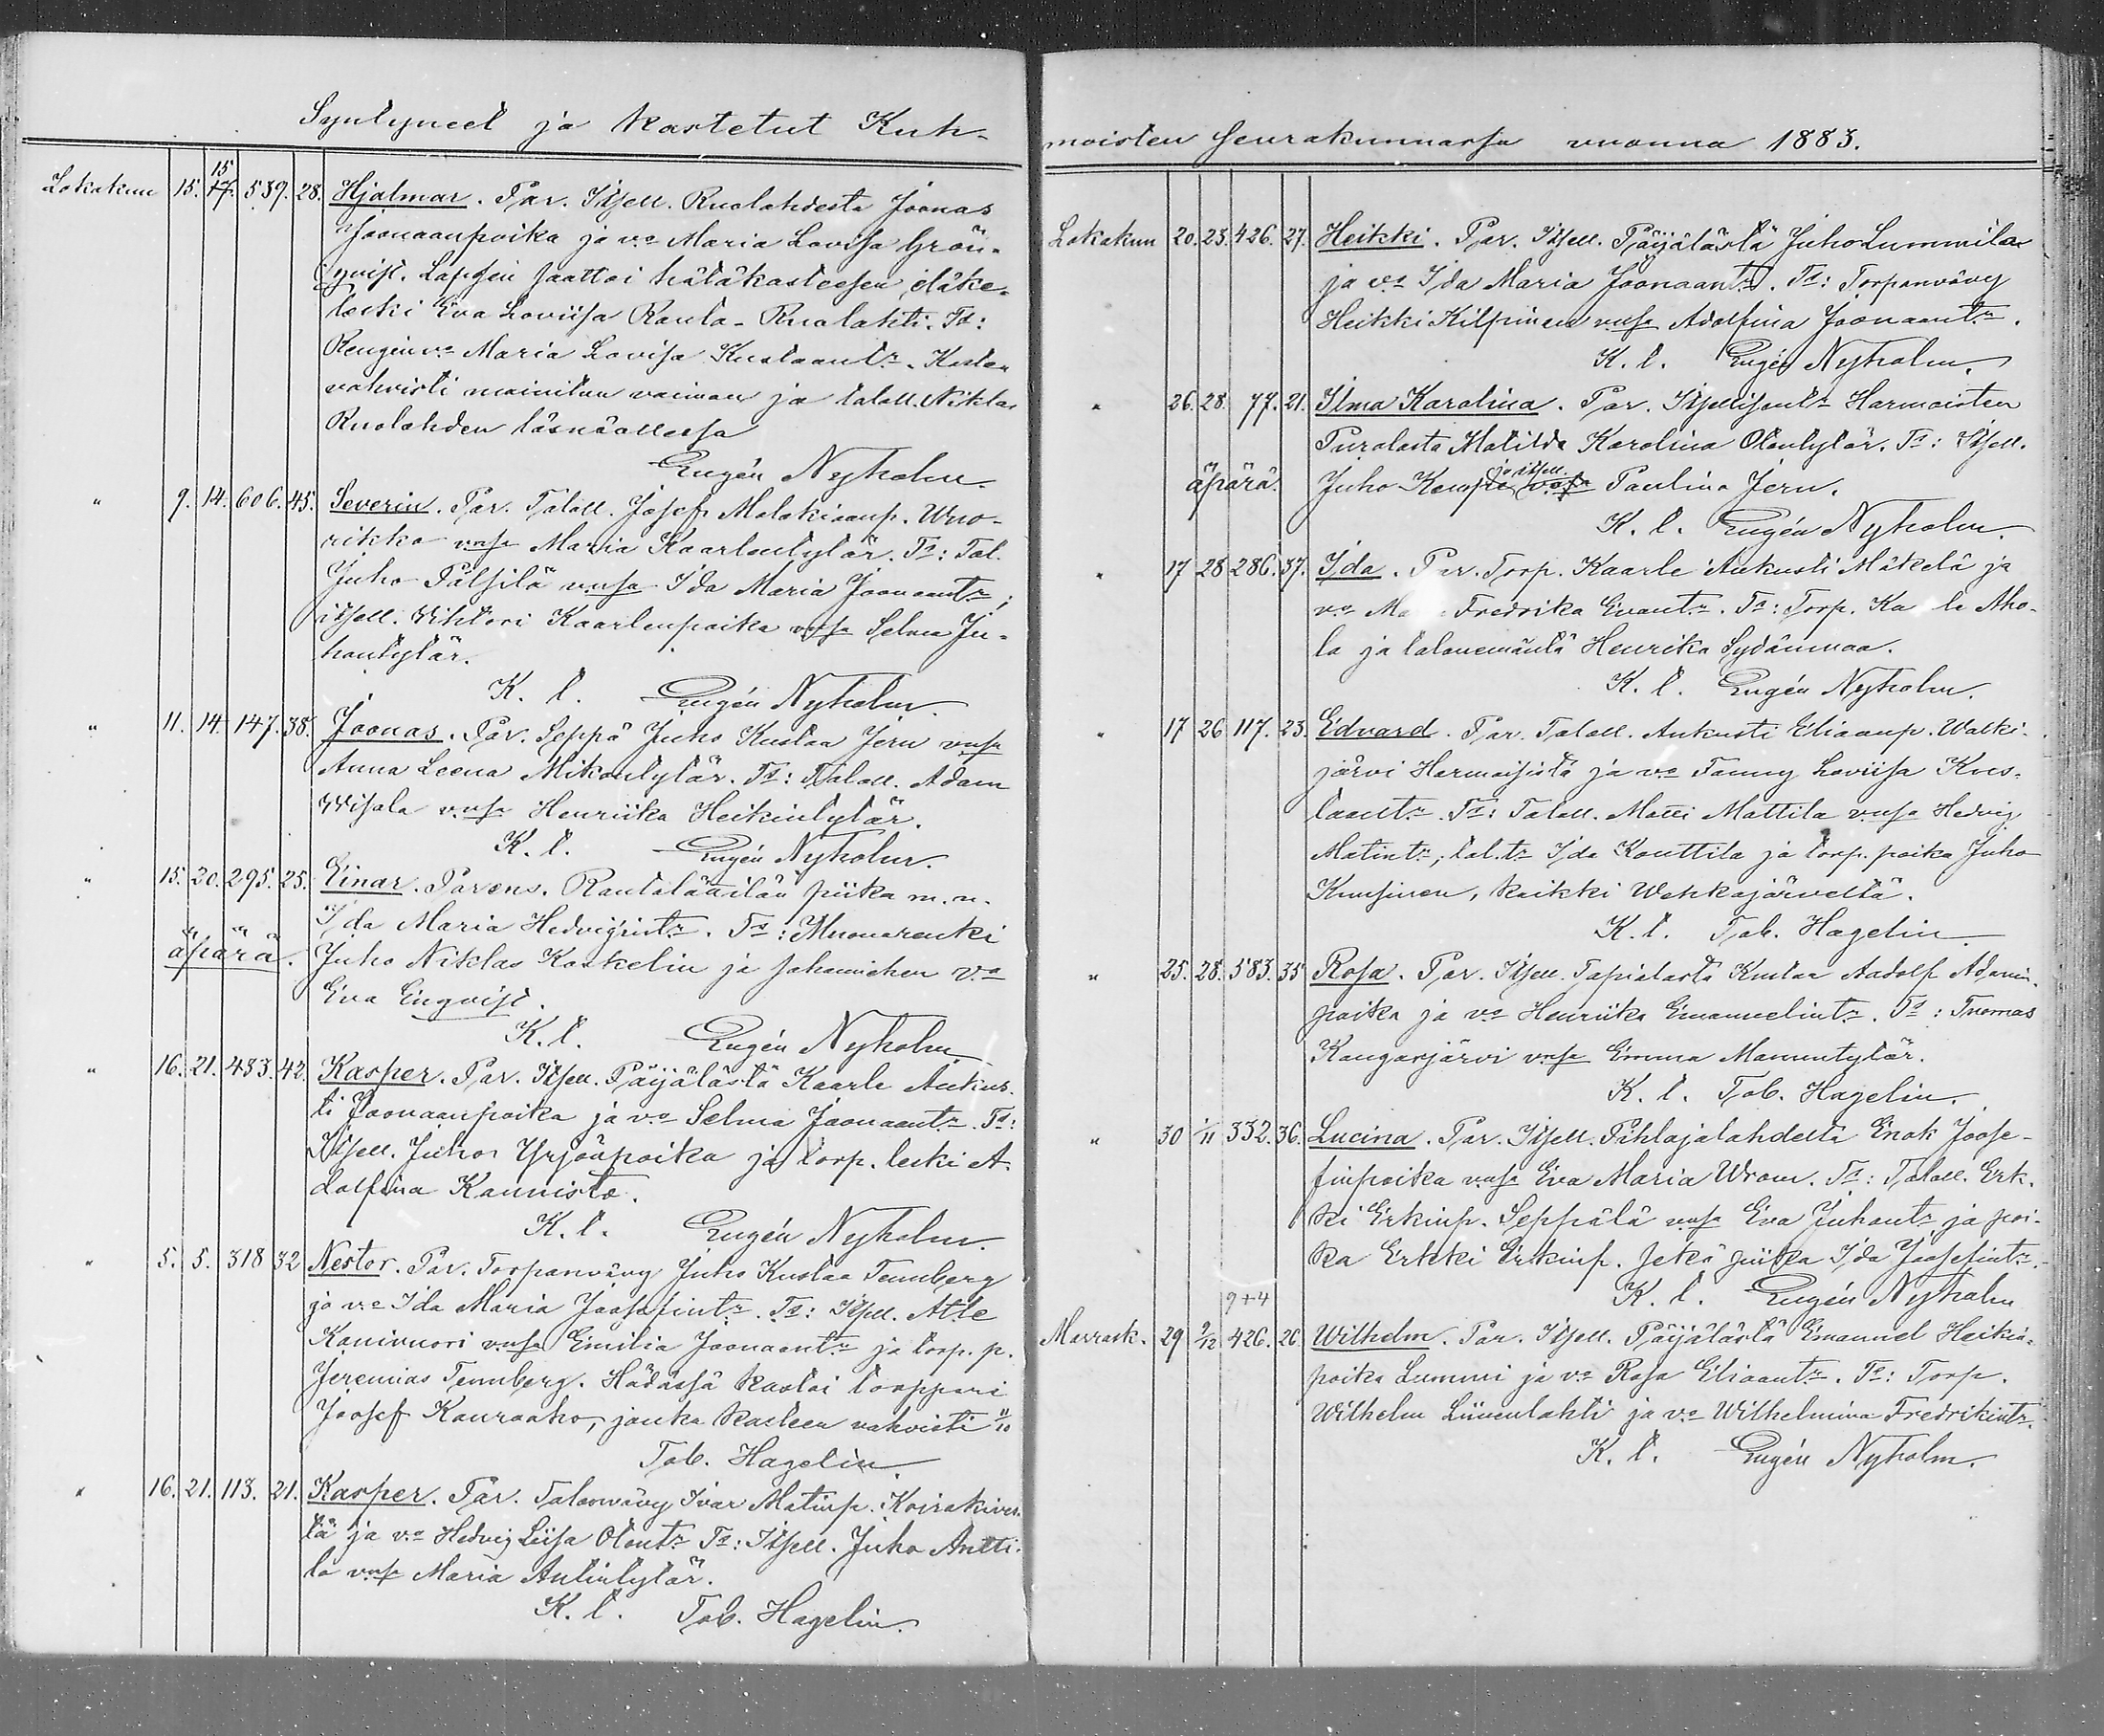 Syntyneet ja Kastetut Kuh-
Lokakuu 15. 15 17. 539. 28. Hjalmar. Par. Itsell. Ruolahdesta Joonas
Joonaanpoika ja v:o Maria Lovisa Grön-
qvist. Lapsen saattoi hätäkasteesen eläke-
leski Eva Loviisa Ranta-Ruolahti. T:d:
Rengin v:o Maria Lovisa Kustaant:r. Kasteen
vahvisti mainitun vaimon ja talall. Niklas
Ruolahden läsnäollessa
Eugén Nyholm.
" 9. 14. 606. 45. Severin. Par. Talall. Josef Malakiaanp. Wuo-
rikko vmsa Maria Kaarlentytär. T:d: Tal.
Juho Pälsilä vmsa Ida Maria Joonaant:r;
itsell. Vihtori Kaarlenpoika vmsa Selma Ju-
hontytär.
K. t. Eugén Nyholm.
" 11. 14. 147. 38. Joonas. Par. Seppä Juho Kustaa Jern vmsa
Anna Leena Mikontytär. T:d: Talall. Adam
Wisala vmsa Henriika Heikintytär.
K. t. Eugén Nyholm.
" 15. 20. 295. 25. Einar. Parens. Rautalännilän piika m. n.
Ida Maria Hedvigint:r. T:d: Muonarenki
äpärä. Juho Niklas Koskelin ja Johanichen v:o
Eva Enqvist.
K. t. Eugén Nyholm
" 16. 21. 433. 42. Kasper. Par. Itsell. Päijälästä Kaarle Aukus-
ti Joonaanpoika ja v:o Selma Joonaant:r. T:d:
Itsell. Juho Yrjönpoika ja torp. leski A-
dolfina Kannisto.
K. t. Eugén Nyholm.
" 5. 5. 318 32 Nestor. Par. Torpanvävy Juho Kustaa Tennberg
ja v:o Ida Maria Joosefint:r. T:d: Itsell. Atle
Kanivuori vmsa Emilia Joonaant:r ja torp. p.
Jeremias Tennberg. Hädässä kastoi torppari
Joosef Kauraaho, jonka kasteen vahvisti 11/10
Tob. Hagelin.
" 16. 21. 113. 21. Kasper. Par. Talonvävy Ivar Matinp. Koirakives-
tä ja v:o Hedvig Liisa Olont:r T:d: Itsell. Juho Antti-
la vmsa Maria Antintytär.
K. t. Tob. Hagelin.
moisten Seurakunnassa vuonna 1883.
Lokakuu 20. 23. 426. 27. Heikki. Par. Itsell. Päijälästä Juho Lummila
ja v:o Ida Maria Joonaant:r. T:d: Torpanvävy
Heikki Kilpinen vmsa Adolfina Joonaant:r.
K. t. Eugén Nyholm.
" 26. 28. 77. 21. Ilma Karolina. Par. Itsellisent:r Harmoisten
Puralasta Matilda Karolina Olontytär. T:d: Itsell.
äpärä. Juho Kempi ja itsell. vmsa Paulina Jern.
K. t. Eugén Nyholm.
" 17 28 286. 37. Ida. Par. Torp. Kaarle Aukusti Mäkelä ja
v:o Ma Fredrika Evant:r. T:d: Torp. Ka le Aho-
la ja talonemäntä Henrika Sydänmaa.
K. t. Eugén Nyholm.
" 17 26 117. 23. Edvard. Par. Talall. Aukusti Eliaanp. Walki-
järvi Harmoisista ja v:o Fanny Loviisa Kus-
taant:r. T:d: Talall. Matti Mattila vmsa Hedvig
Matint:r, tal.t:r Ida Kouttila ja torp. poika Juho
Kuusinen, kaikki Wehkajärveltä.
K. t. Tob. Hagelin.
" 25. 28. 583. 35 Rosa. Par. Itsell. Tapialasta Kustaa Aadolf Adamin-
poika ja v:o Henriika Emanuelint:r. T:d: Tuomas
Kangasjärvi vmsa Emma Manuntytär.
K. t. Tob. Hagelin.
" 30 1/11 332. 36. Lucina. Par. Itsell. Pihlajalahdelta Enok Joose-
finpoika vmsa Eva Maria Wrom. T:d: Talall. Erk-
ki Erkinp. Seppälä vmsa Eva Juhont:r ja poi-
ka Erkki Erkinp. sekä piika Ida Joosefint:r.
K. t. Eugén Nyholm
9+4
Marrask. 29 9/12 426. 26 Wilhelm. Par. Itsell. Päijälästä Emanuel Heikin-
poika Lummi ja v:o Rosa Eliaant:r. T:d: Torp.
Wilhelm Liinenlahti ja v:o Wilhelmina Fredrikint:r.
K. t. Eugén Nyholm.